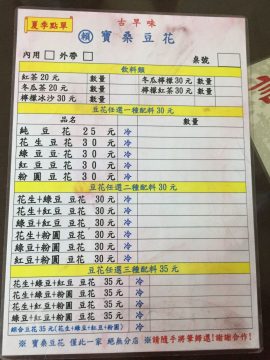 夏季點單
古早味
賴 寶桑豆花
內用 外帶 桌號
飲料類
紅茶20元 數量 冬瓜檸檬30元 數量
冬瓜茶20元 數量 紅茶檸檬30元 數量
檸檬冰沙30元 數量
豆花任選一種配料30元
品名 數量
純豆花 25元 冷
花生豆花 30元 冷
綠豆豆花 30元 冷
紅豆豆花 30元 冷
粉圓豆花 30元 冷
豆花任選二種配料30元
花生+綠豆 豆花 30元 冷
花生+紅豆 豆花 30元 冷
花生+粉圓 豆花 30元 冷
綠豆+紅豆 豆花 30元 冷
綠豆+粉圓 豆花 30元 冷
紅豆+粉圓 豆花 30元 冷
豆花任選三種配料35元
花生+綠豆+紅豆 豆花 35元 冷
花生+綠豆+粉圓 豆花 35元 冷
花生+紅豆+粉圓 豆花 35元 冷
綠豆+紅豆+粉圓 豆花 35元 冷
綜合豆花35元(花生+綠豆+紅豆+粉圓) 冷
※ 寶桑豆花 僅此一家 絕無分店 ※請隨手將筆歸還!謝謝合作!